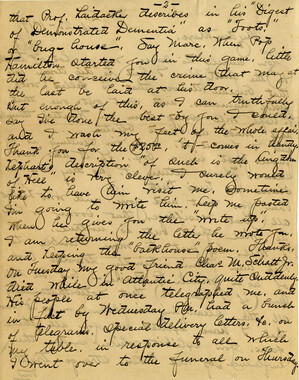 -2-
that Prof. describes in his "Digest
of Demonstrated Dementia" as "Foots,"
or "bug-house." Say Marc, When Pop
Hamilton started you in this game, little
did he conceive the crime that may at
the last be laid at his door.
But enough of this, as I can truthfully
say I've done the best by you I could,
and I wash my feet of the whole affair.
Thank you for the It comes in handy.
description "of such is the kingdom
of Hell" is very clever. I surely would
like to have him visit me. Sometime
I'm going to write him. Keep me posted
when he gives you the "write up".
I am returning the letter he wrote you,
and keeping the "backhouse" poem. Thanks.
On Tuesday my good friend Chas. M. Jr.
died while in Atlantic City, quite suddenly.
His people at once telegraphed me, and
in fact by Wednesday P.M. had a bunch
of telegrams, special delivery letters, &c. on
my table. in response to all which
I went over to the funeral on Thursday